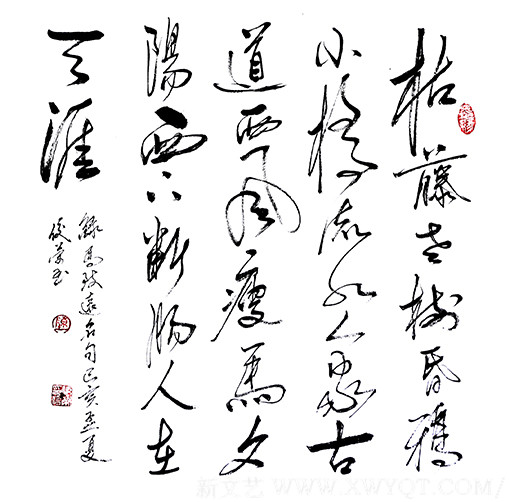 枯藤老樹昏鴉
小橋流水人家古
道西風瘦馬夕
陽西下斷腸人在
天涯
錄馬致遠名句己亥孟夏
新文艺 WWW.XWYQT.COM/